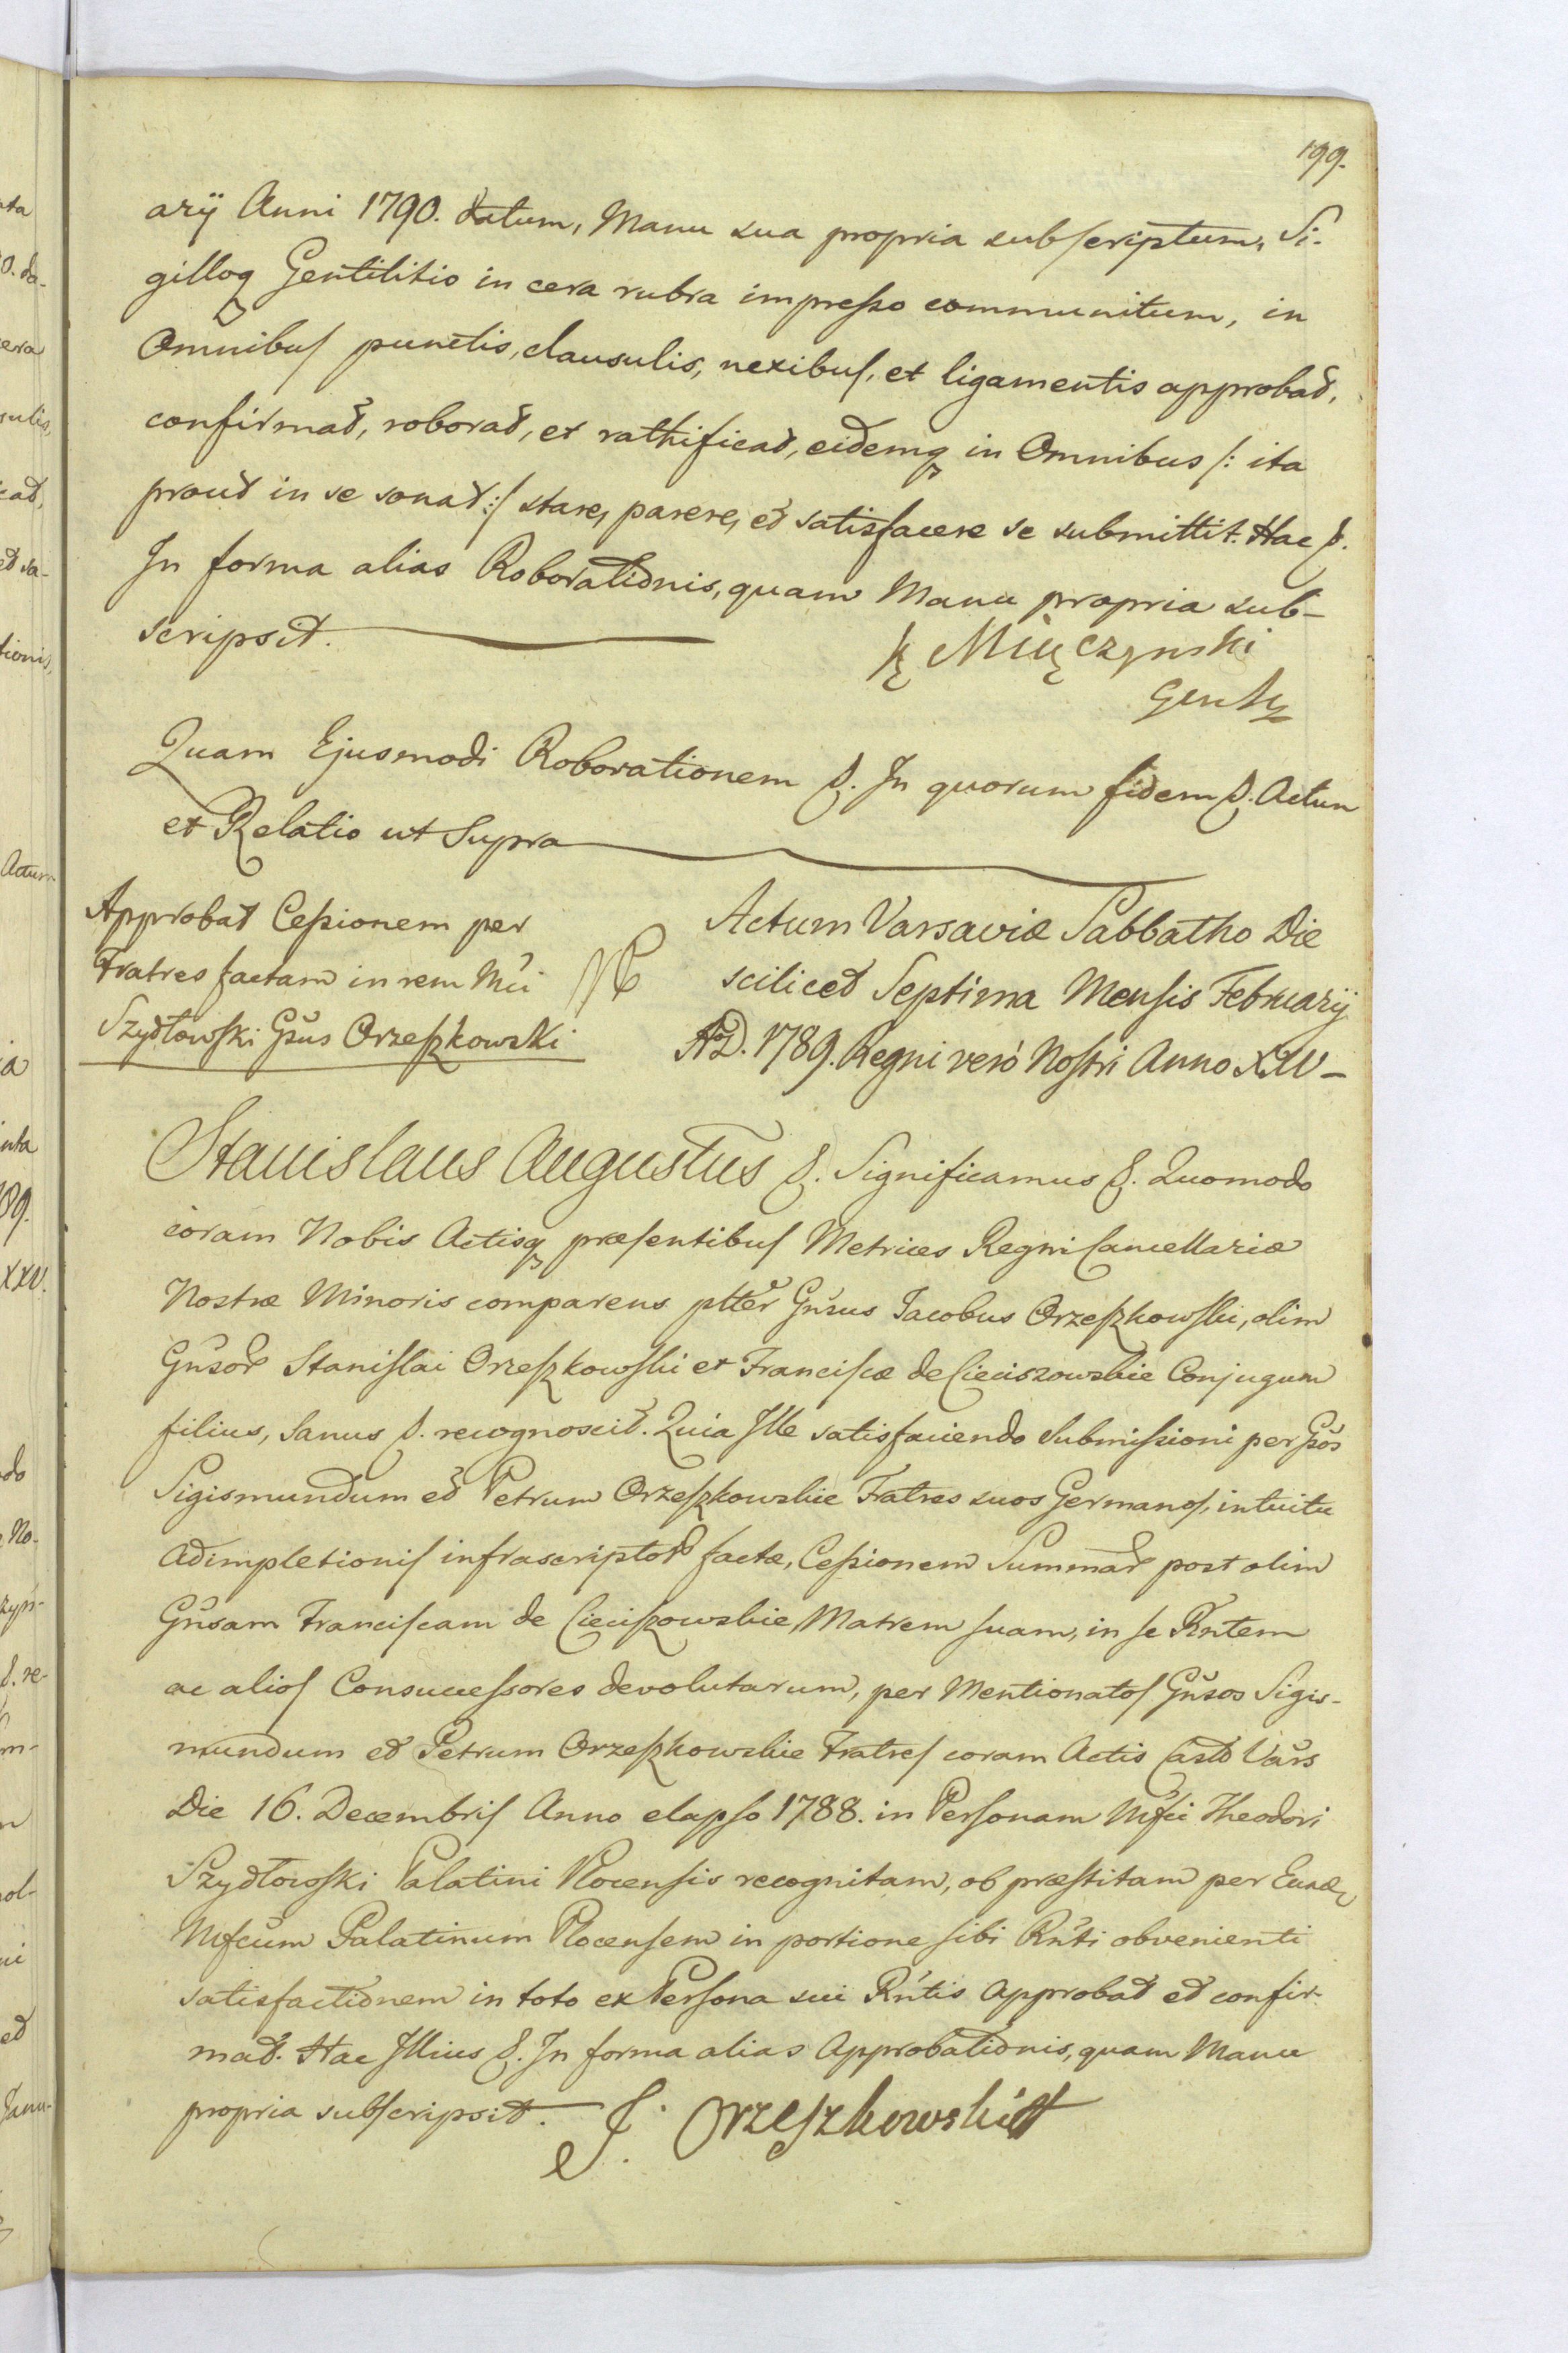 199.
arij Anni 1790. datum, Manu sua propria subscriptum, Si-
gilloq Gentilitio in cera rubra impresso communitum, in
Omnibus punctis, clausulis, nexibus, et ligamentis approbat,
confirmat, roborat, et rathificat, eidemq in Omnibus /: ita
prout in se sonat :/ stare, parere, et satisfacere se submittit. Hac p.
In forma alias Roborationis, quam Manu propria sub-
scripsit.
Miączynski
Quam Ejusmodi Roborationem p. In quorum fidem p. Actum
et Relatio ut Supra
Approbat Cessionem per
Fratres factam in rem Mci
Szydłowski Gsus Orzeszkowski
Actum Varsaviæ Sabbatho Die
scilicet Septima Mensis Februarij
AD. 1789. Regni veró Nostri Anno XXV -
Stanislaus Augustus p. Significamus p. Quomodo
coram Nobis Actisq præsentibus Metrices Regni Cancellariæ
Nostræ Minoris comparens pltter Gnsus Jacobus Orzeszkowski, olim
Gnsor Stanislai Orzeszkowski et Franciscæ de Cieciszowskie Conjugum
filius, Sanus p. recognoscit. Quia Ille satisfaciendo Submissioni per Gsos
Sigismundum et Petrum Orzeszkowskie Fratres suos Germanos, intuitu
Adimpletionis infrascriptor factæ, Cessionem Summar post olim
Gnsam Franciscam de Cieciszowskie Matrem suam, in se Rntem
ac alios Consuccessores devolutarum, per Mentionatos Gnsos Sigis-
mundum et Petrum Orzeszkowskie Fratres coram Actis Castr Vars
Die 16. Decembris Anno elapso 1788. in Personam Mfci Theodori
Szydłowski Palatini Plocensis recognitam, ob præstitam per Eund
Mfcum Palatinum Plocensem in portione sibi Rnti obvenienti
satisfactionem in toto ex Persona sui Rntis Approbat et confir-
mat. Hac Illius p. In forma alias Approbationis, quam Manu
propria subscripsit. J. Orzeszkowski